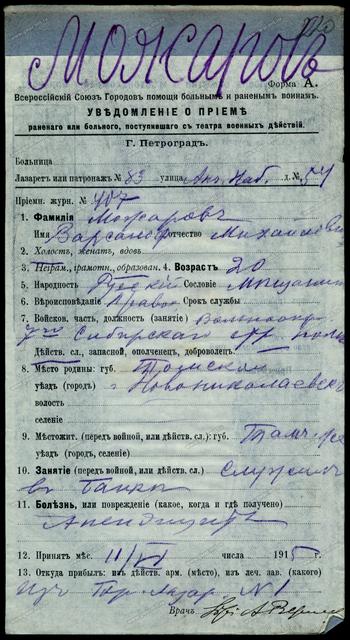 Можаровъ
Форма А.
Всероссійскій Союзъ Городовъ помощи больнымъ и раненымъ воинамъ.
УВѢДОМЛЕНІЕ О ПРІЕМѢ
раненаго или больного, поступившаго съ театра военныхъ дѣйствій.
Г. Петроградъ.
Больница
Лазаретъ или патронажъ № 83 улица Анг. Наб. д. № 54
Пріемн. журн. № 407
1. Фамилія Можаровъ
Имя Варсаноф Отчество Михайлов
2. Холостъ, женатъ, вдовъ
3. Неграм., грамотн., образован. 4. Возрастъ 20
5. Народность Русскій Сословіе Мѣщанин
6. Вѣроисповѣданіе Правос Срокъ службы
7. Войсков. часть, должность (занятіе) Вольноопр.
Сибирскаго стр. полка
Дѣйств. сл., запасной, ополченецъ, доброволецъ.
8. Мѣсто родины: губ. Томская
уѣздъ (городъ) г Новониколаевск
волость
селеніе
9. Мѣстожит. (передъ войной, или дѣйств. сл.): губ. Тамъ-же
уѣздъ (городъ, селеніе)
10. Занятіе (передъ войной, или дѣйств. сл.) Служилъ
въ банкѣ
11. Болѣзнь, или поврежденіе (какое, когда и гдѣ получено)
Апендицитъ
12. Принятъ мѣс. 11/VI числа 1915 г.
13. Откуда прибылъ: изъ дѣйств. арм. (мѣсто), изъ леч. зав. (какого)
Изъ Гор. Лазар. № 1
Врачъ